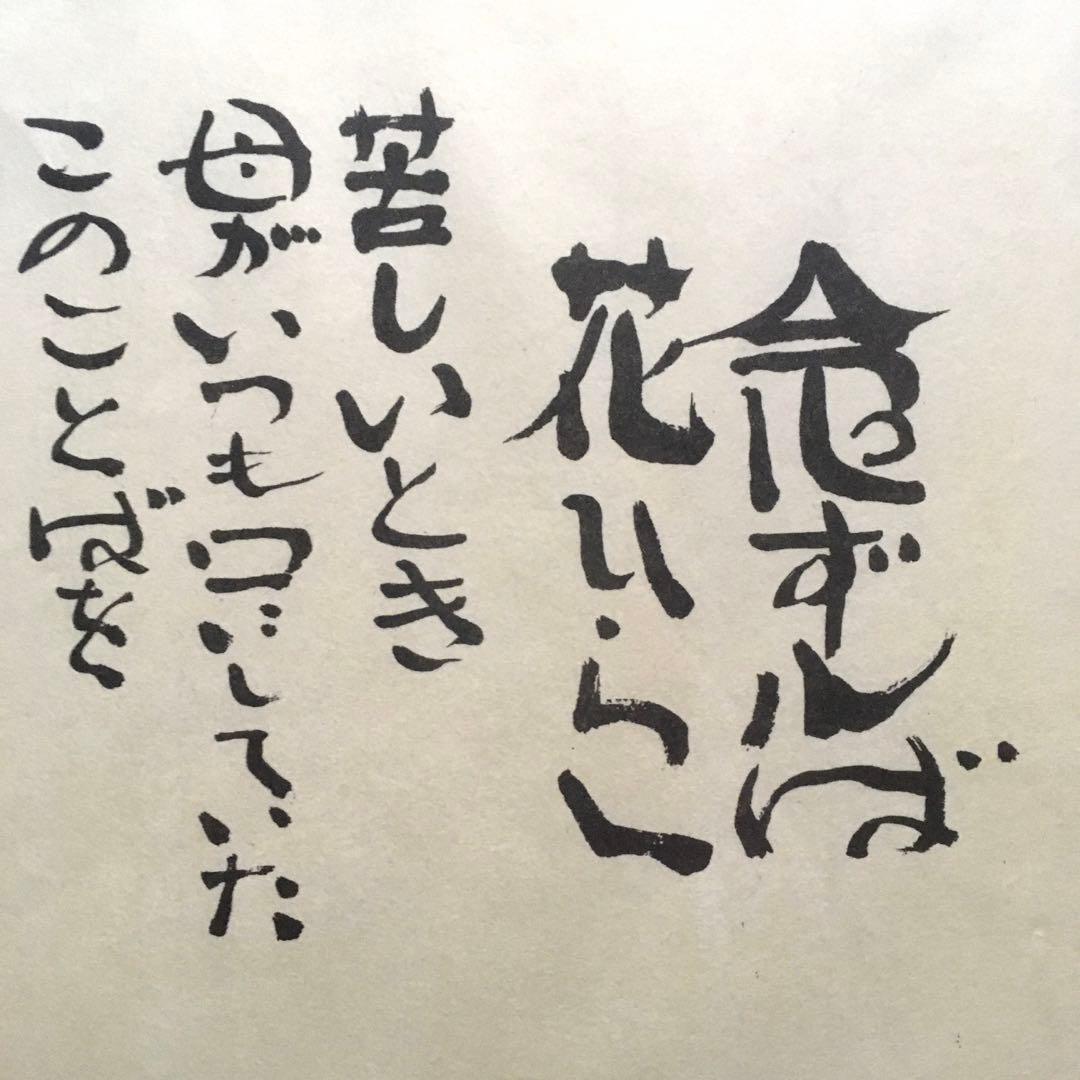 念ずれば
花ひらく
苦しいとき
母がいつも口にしていた
このことばを